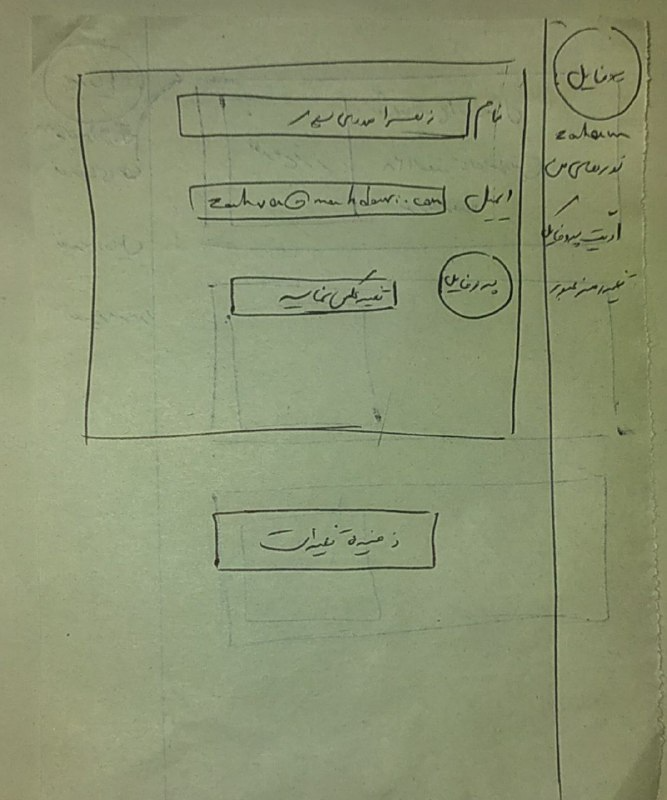 پروفایل
zahra
تورهای من
ادیت پروفایل
تغییر رمز عبور
نام
زهرا مهدوی
ایمیل
zahra@mahdavi.com
پروفایل
تغییر عکس نمایه
ذخیره تغییرات